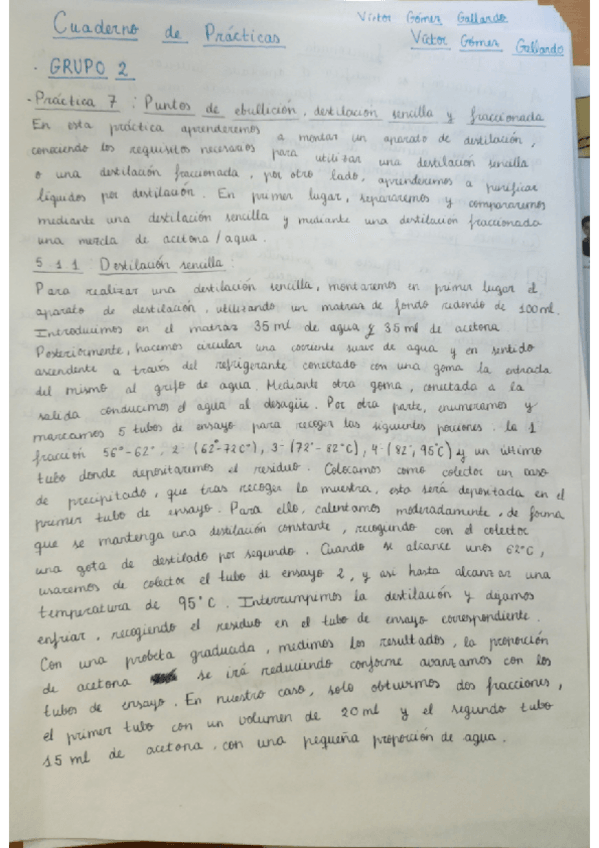 Cuaderno de Prácticas
Víctor Gómez Gallardo
Víctor Gómez Gallardo
· GRUPO 2
- Práctica 7 : Puntos de ebullición, destilación sencilla y fraccionada
En esta práctica aprenderemos a montar un aparato de destilación,
conociendo los requisitos necesarios para utilizar una destilación sencilla
o una destilación fraccionada, por otro lado, aprenderemos a purificar
líquidos por destilación. En primer lugar, separaremos y compararemos
mediante una destilación sencilla y mediante una destilación fraccionada
una mezcla de acetona / agua.
5.1.1 Destilación sencilla:
Para realizar una destilación sencilla, montaremos en primer lugar el
aparato de destilación, utilizando un matraz de fondo redondo de 100ml.
Introducimos en el matraz 35 ml de agua y 35 ml de acetona
Posteriormente, hacemos circular una corriente suave de agua y en sentido
ascendente a través del refrigerante conectado con una goma la entrada
del mismo al grifo de agua. Mediante otra goma, conectada a la
salida conducimos el agua al desagüe. Por otra parte, enumeremos y
marcamos 5 tubos de ensayo para recoger las siguientes porciones. la 1
fracción 56°-62°, 2- (62°-72C°), 3- (72°-82°C), 4- (82, 95°C) y un último
tubo donde depositaremos el residuo. Colocamos como colector un vaso
de precipitado, que tras recoger la muestra, esta será depositada en el
primer tubo de ensayo. Para ello, calentamos moderadamente, de forma
que se mantenga una destilación constante, recogiendo con el colector
una gota de destilado por segundo. Cuando se alcance unos 62°C,
usaremos de colector el tubo de ensayo 2, y así hasta alcanzar una
temperatura de 95°C. Interrumpimos la destilación y dejamos
enfriar, recogiendo el residuo en el tubo de ensayo correspondiente.
Con una probeta graduada, medimos los resultados, la proporción
de acetona se irá reduciendo conforme avanzamos con los
tubos de ensayo. En nuestro caso, solo obtuvimos dos fracciones,
el primer tubo con un volumen de 20 ml y el segundo tubo
15 ml de acetona, con una pequeña proporción de agua.